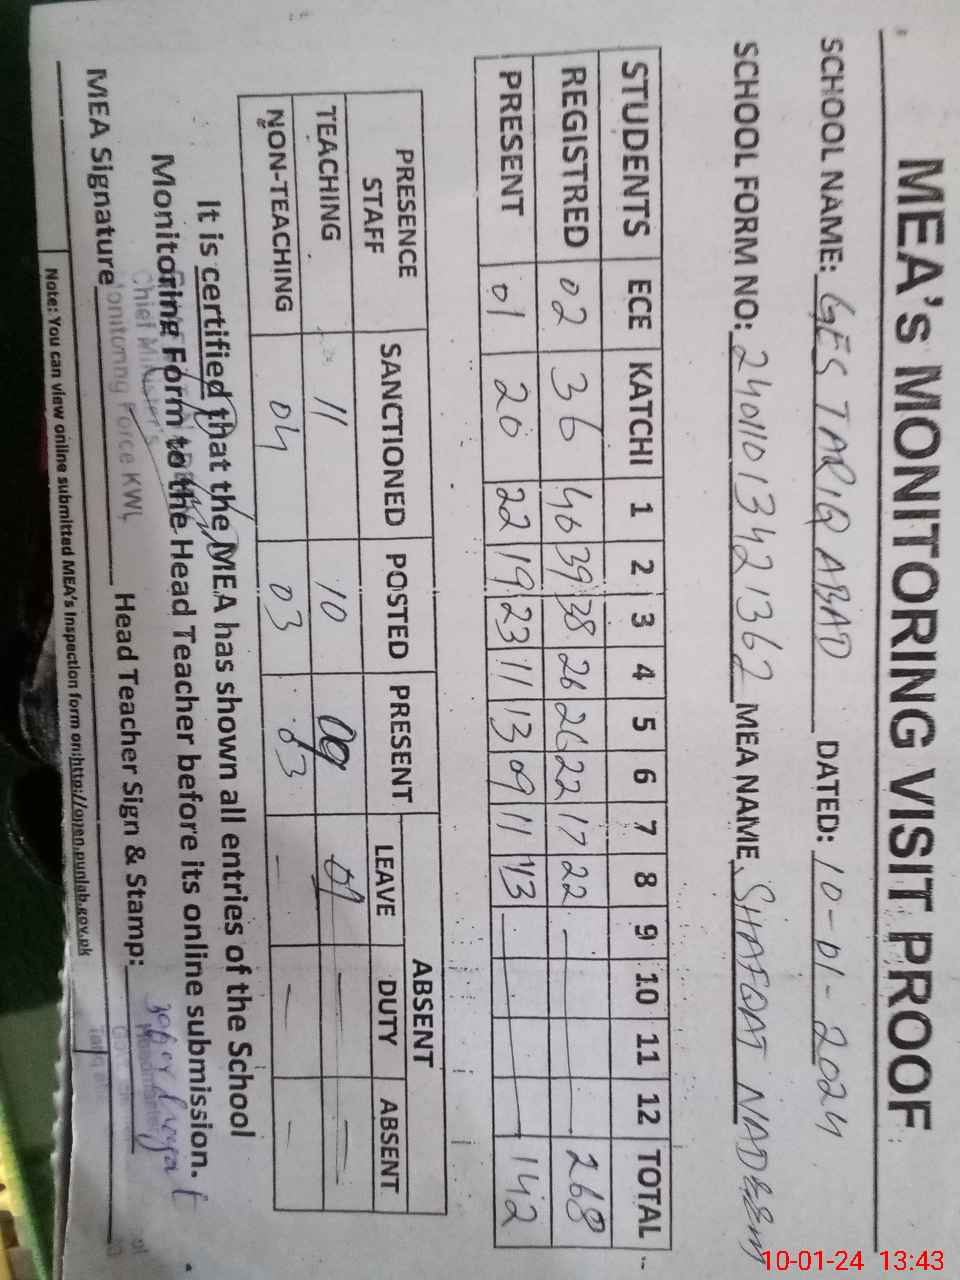 MEA's MONITORING VISIT PROOF
SCHOOL NAME: GES TARIQ ABAD DATED: 10-01-2024
SCHOOL FORM NO: 24011013421362 MEA NAME SHAFQAT NADEEM
STUDENTS ECE KATCHI 1 2 3 4 5 6 7 8 9 10 11 12 TOTAL
REGISTRED 02 36 40 39 38 26 26 22 17 22 268
PRESENT 01 20 22 19 23 11 13 09 11 13 142
PRESENCE STAFF SANCTIONED POSTED PRESENT ABSENT
LEAVE DUTY ABSENT
TEACHING 11 10 09 01 — —
NON-TEACHING 04 03 03 — — —
It is certified that the MEA has shown all entries of the School
Monitoring Form to the Head Teacher before its online submission.
Chief Minister's
Monitoring Force KWL
MEA Signature Head Teacher Sign & Stamp:
Note: You can view online submitted MEA's Inspection form on:http://open.punjab.gov.pk
10-01-24 13:43